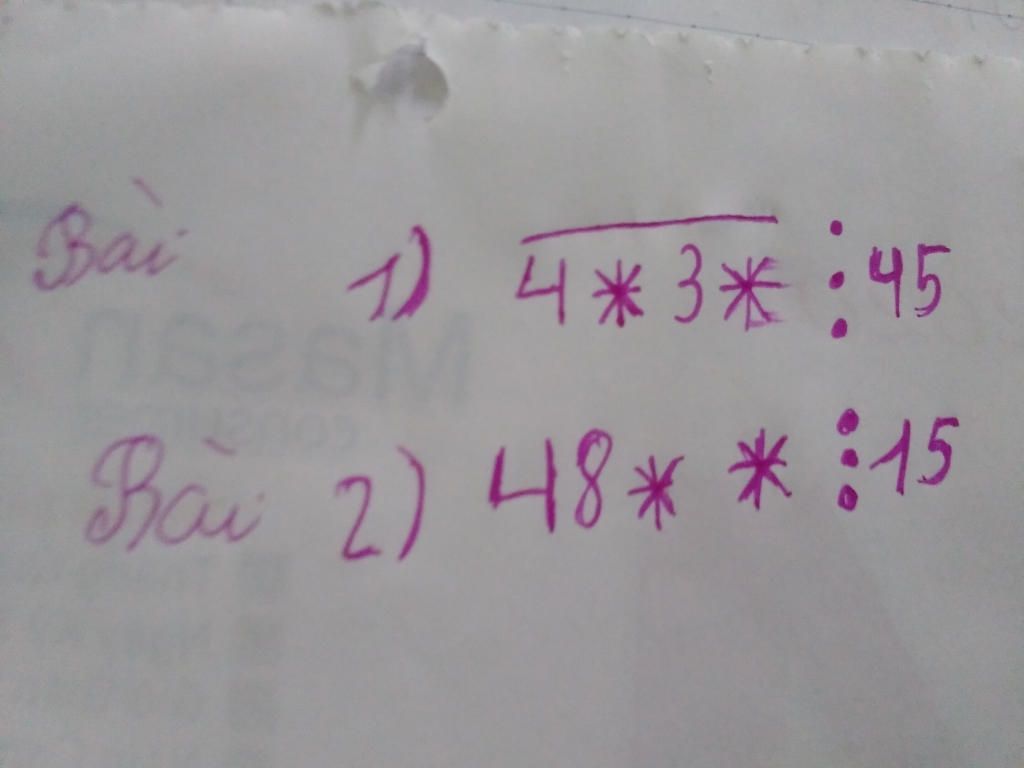 Bài 1) 4*3* ⋮ 45
Bài 2) 48** ⋮ 15